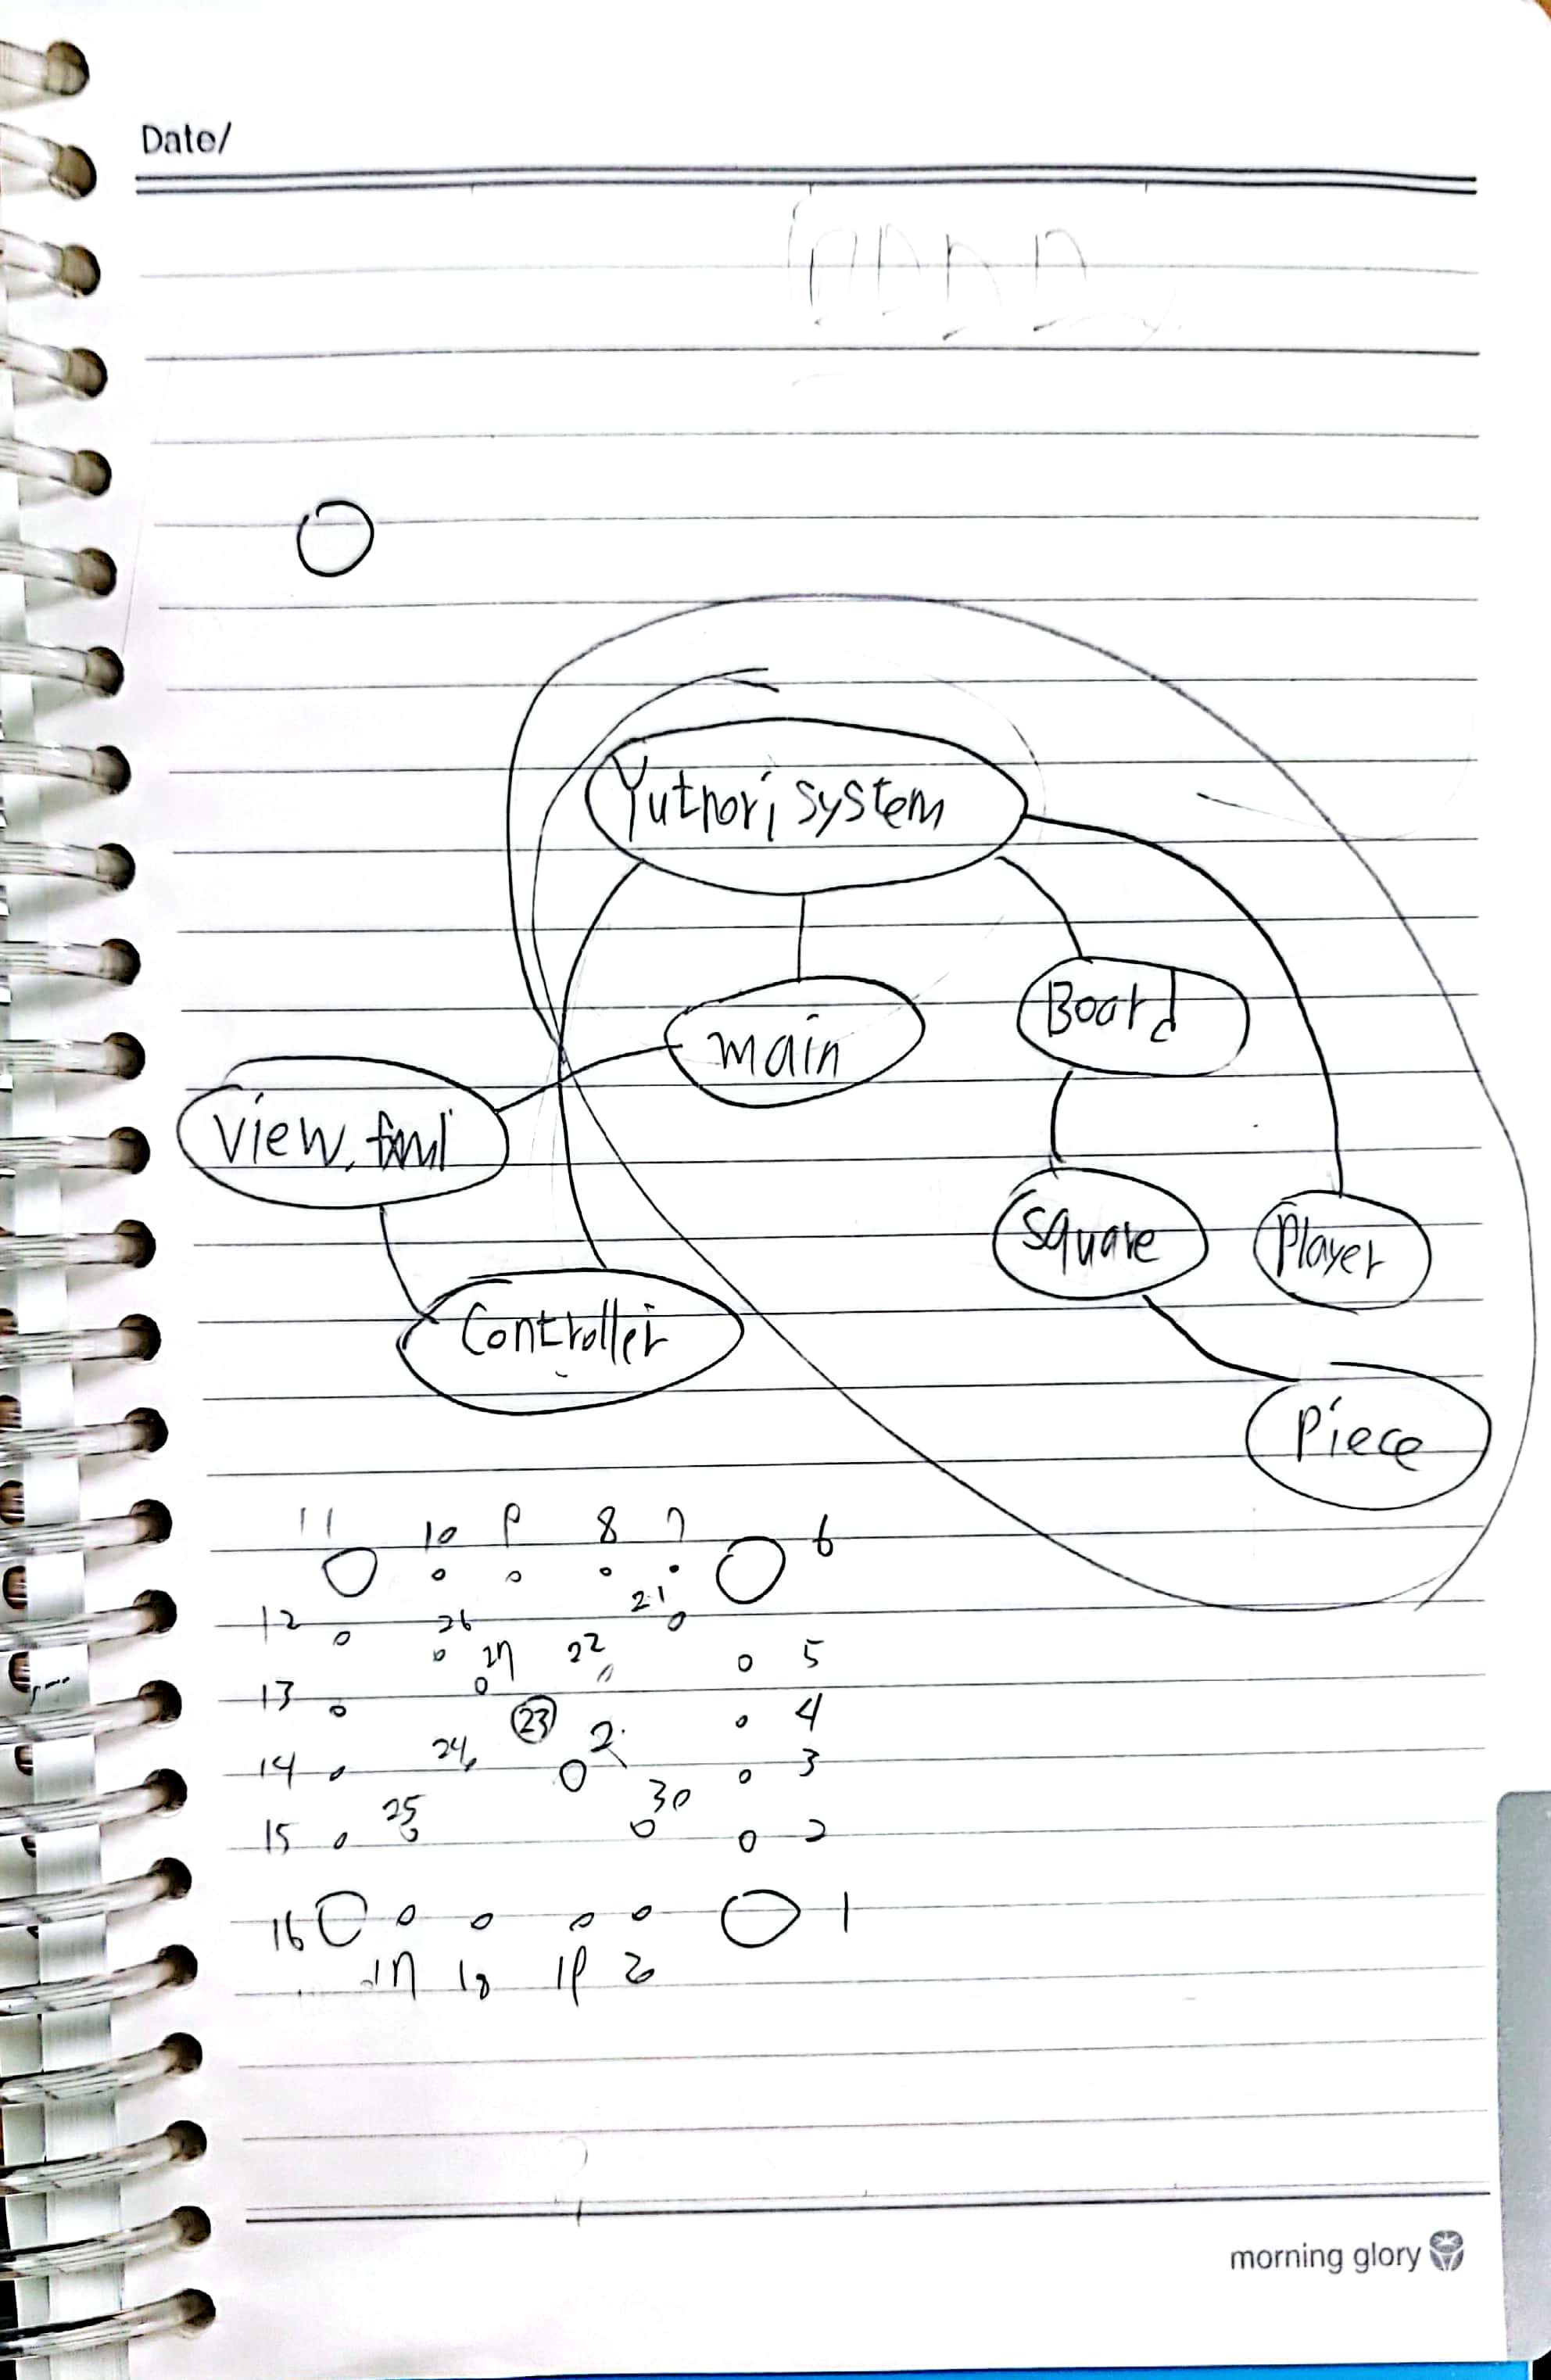 Date/
Yutnori system
main
Board
view.fxml
square
Player
Controller
Piece
11 10 9 8 7 6
12 26 21
27 22 5
13
23 4
14 24 3
25 30
15 2
16 1
17 18 19 20
morning glory